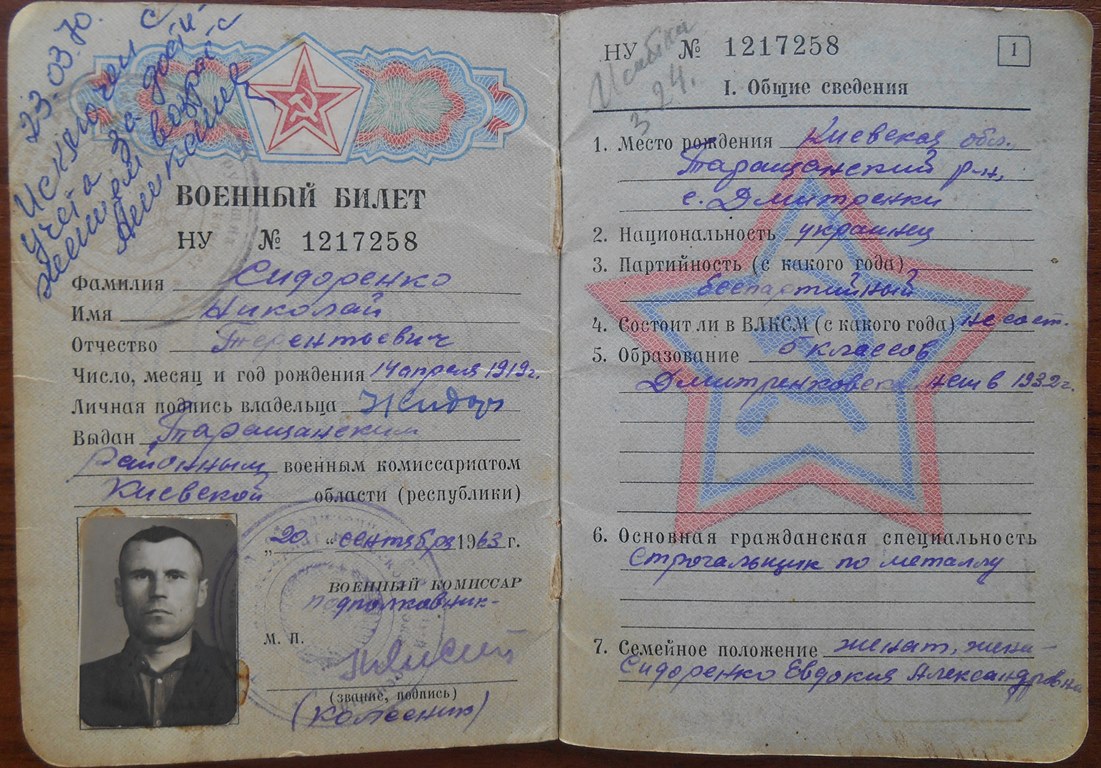 23.03.70.
Исключен с
учета за дости-
жением возраста
ВОЕННЫЙ БИЛЕТ
НУ № 1217258
Фамилия Сидоренко
Имя Николай
Отчество Терентьевич
Число, месяц и год рождения 14 апреля 1919г.
Личная подпись владельца НСидор
Выдан Таращанским
Районным военным комиссариатом
Киевской области (республики)
„20„ сентября 1963 г.
ВОЕННЫЙ КОМИССАР
подполковник-
М. П.
(звание, подпись)
(Колесник)
НУ № 1217258
1
24.
3
I. Общие сведения
1. Место рождения Киевская обл.
Таращанский р-н,
с. Дмитренки
2. Национальность украинец
3. Партийность (с какого года)
беспартийный
4. Состоит ли в ВЛКСМ (с какого года) не сост.
5. Образование 5 классов
Дмитренковск. нсш в 1932г.
6. Основная гражданская специальность
Строгальщик по металлу
7. Семейное положение женат, жена-
Сидоренко Евдокия Александровна